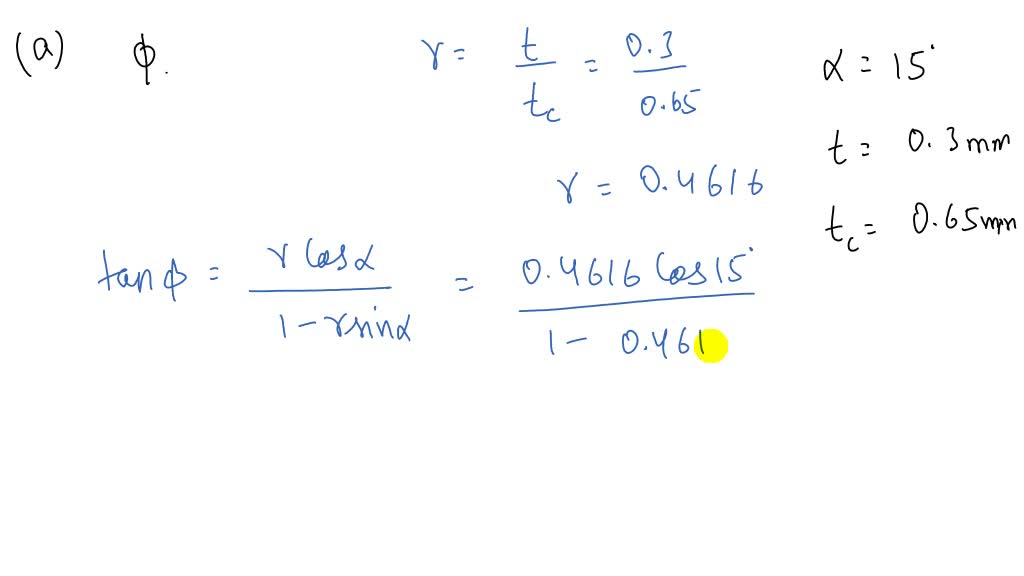 (a) φ. r = t / tc = 0.3 / 0.65
α = 15°
t = 0.3 mm
r = 0.4616
tc = 0.65mm
tan φ = r Cos α / 1 - r sin α = 0.4616 Cos 15° / 1 - 0.461